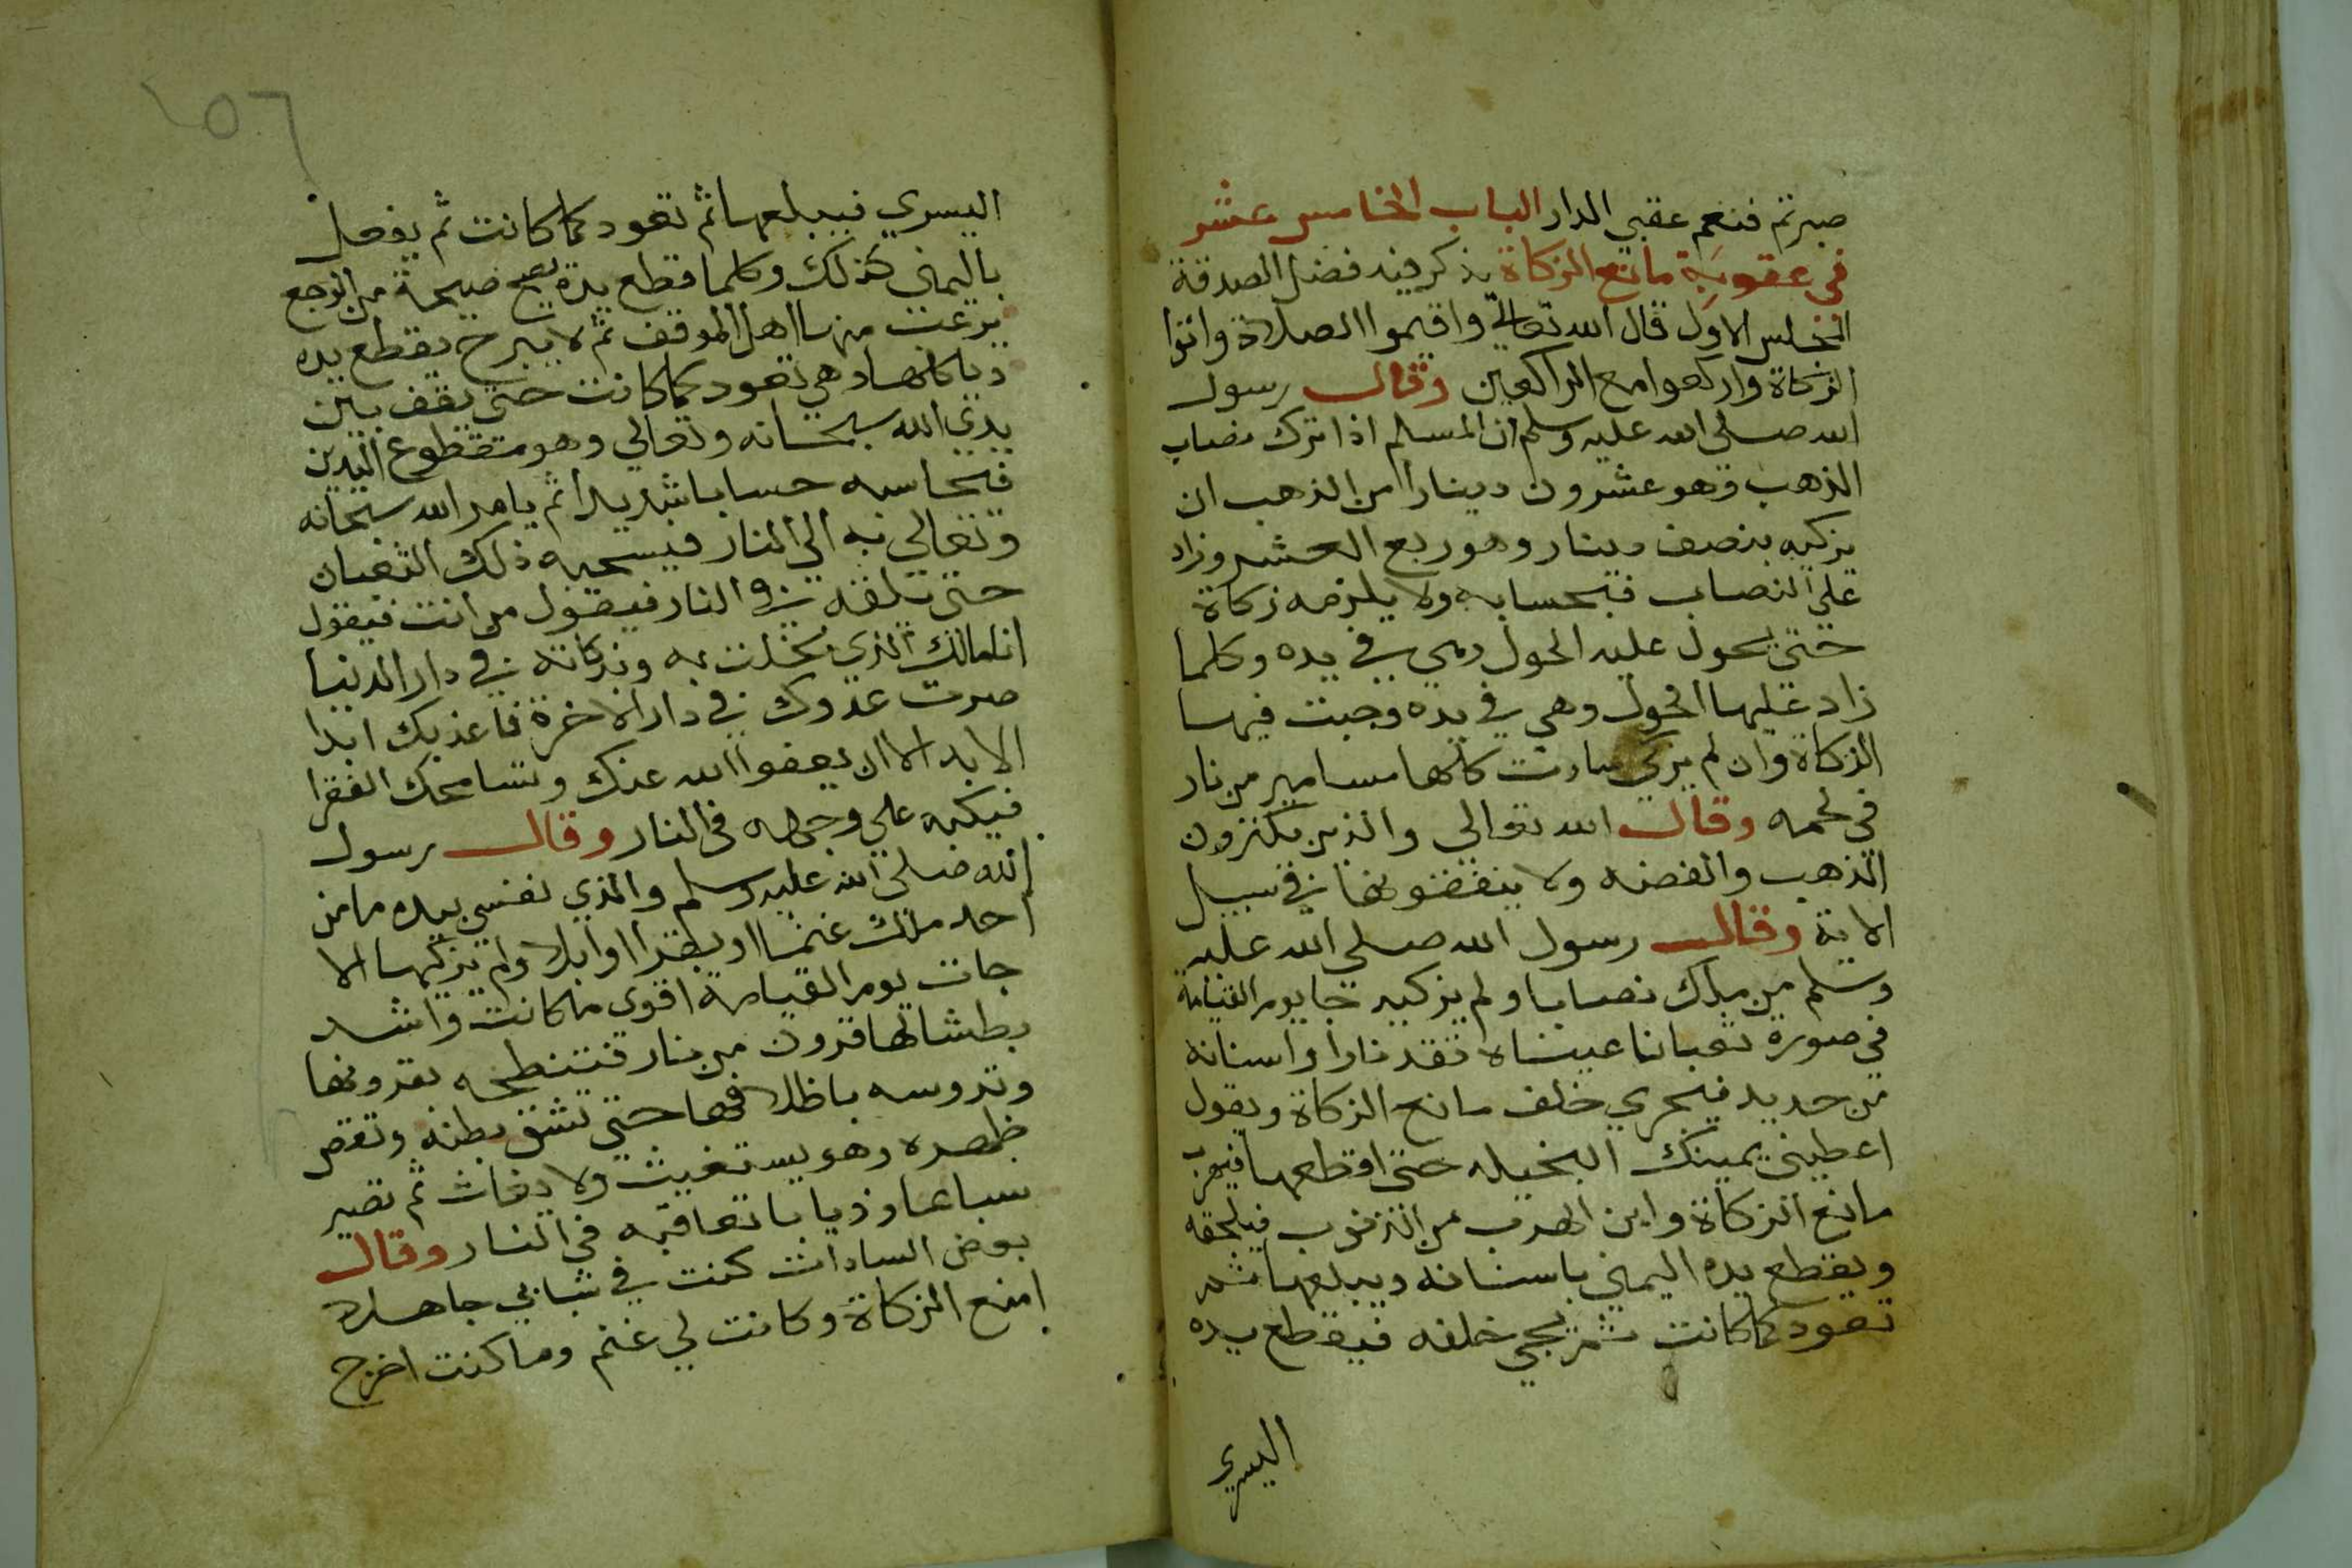 صبرتم فنعم عقبي الدار الباب الخامس عشر
في عقوبة مانع الزكاة يذكر فيه فضل الصدقة
المجلس الاول قال الله تعالى واقيموا الصلاة واتوا
الزكاة واركعوا مع الراكعين وقال رسول
الله صلى الله عليه وسلم ان المسلم اذا ترك نصاب
الذهب وهو عشرون دينارا من الذهب ان
يزكيه بنصف دينار وهو ربع العشر وزاد
علي النصاب فبحسابه ولا يلزمه زكاة
حتي يحول عليه الحول وهي في يده وكلما
زاد عليها الحول وهي في يده وجبت فيها
الزكاة وان لم يزكي صارت كلها مسامير من نار
في لحمه وقال الله تعالي والذين يكنزون
الذهب والفضه ولا ينفقونها في سبيل
الاية وقال رسول الله صلى الله عليه
وسلم من ملك نصابا ولم يزكيه جا يوم القيامة
في صورة ثعبانا عيناه تقد نارا واسنانه
من حديد فيجري خلف مانع الزكاة ويقول
اعطيني يمينك البخيله حتى اقطعها فيهرب
مانع الزكاة واين الهرب من الذنوب فيلحقه
ويقطع يده اليمني باسنانه ويبلعها ثم
تعود كما كانت ثم يجي خلفه فيقطع يده
اليسري
١٥٦
اليسري فيبلعها ثم تعود كما كانت ثم يفعل
باليمني كذلك وكلما قطع يده يصيح صيحة من الوجع
يرعب منها اهل الموقف ثم لا يبرح يقطع يده
وياكلها وهي تعود كما كانت حتى يقف بين
يدي الله سبحانه وتعالي وهو مقطوع اليدين
فيحاسبه حسابا شديدا ثم يامر الله سبحانه
وتعالي به الي النار فيسحبه ذلك الثعبان
حتي يلقه في النار فيقول من انت فيقول
انا مالك الذي بخلت به وبزكاته في دار الدنيا
صرت عدوك في دار الاخرة فاعذبك ابدا
الابد الا ان يعفوا الله عنك وتسامحك الفقرا
فيكبه علي وجهه في النار وقال رسول
الله صلى الله عليه وسلم والذي نفسي بيده ما من
احد ملك غنما او بقرا او ابلا ولم يزكيها الا
جات يوم القيامة اقوى ما كانت واشد
بطشا لها قرون من نار فتنطحه بقرونها
وتدوسه باظلافها حتي تشق بطنه وتقصر
ظهره وهو يستغيث ولا يغاث ثم تصير
سباعا وذيابا تعاقبه في النار وقال
بعض السادات كنت في شبابي جاهلا
امنع الزكاة وكانت لي غنم وما كنت اخرج